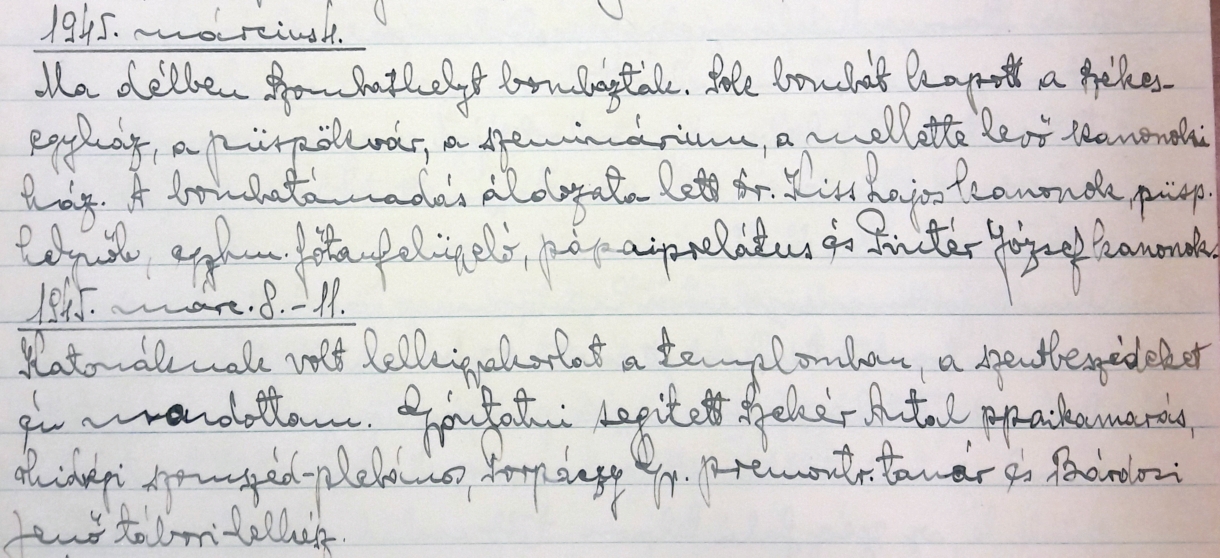 1945. március 4.
Ma délben Szombathelyt bombázták. Sok bombát kapott a székes-
egyház, a püspökvár, a szeminárium, a mellette levő kanonoki
ház. A bombatámadás áldozata lett dr. Kiss Lajos kanonok, püsp.
helynök, egyhm. főtanfelügyelő, pápai prelátus és Pintér József kanonok.
1945. márc. 8.-11.
Katonáknak volt lelkigyakorlat a templomban, a szentbeszédeket
én mondottam. Gyóntatni segített Szekér Antal ppaikamarás,
őhidvégi szomszéd-plébános, Gy. premontr. tanár és Bárdosi
Jenő tábori-lelkész.